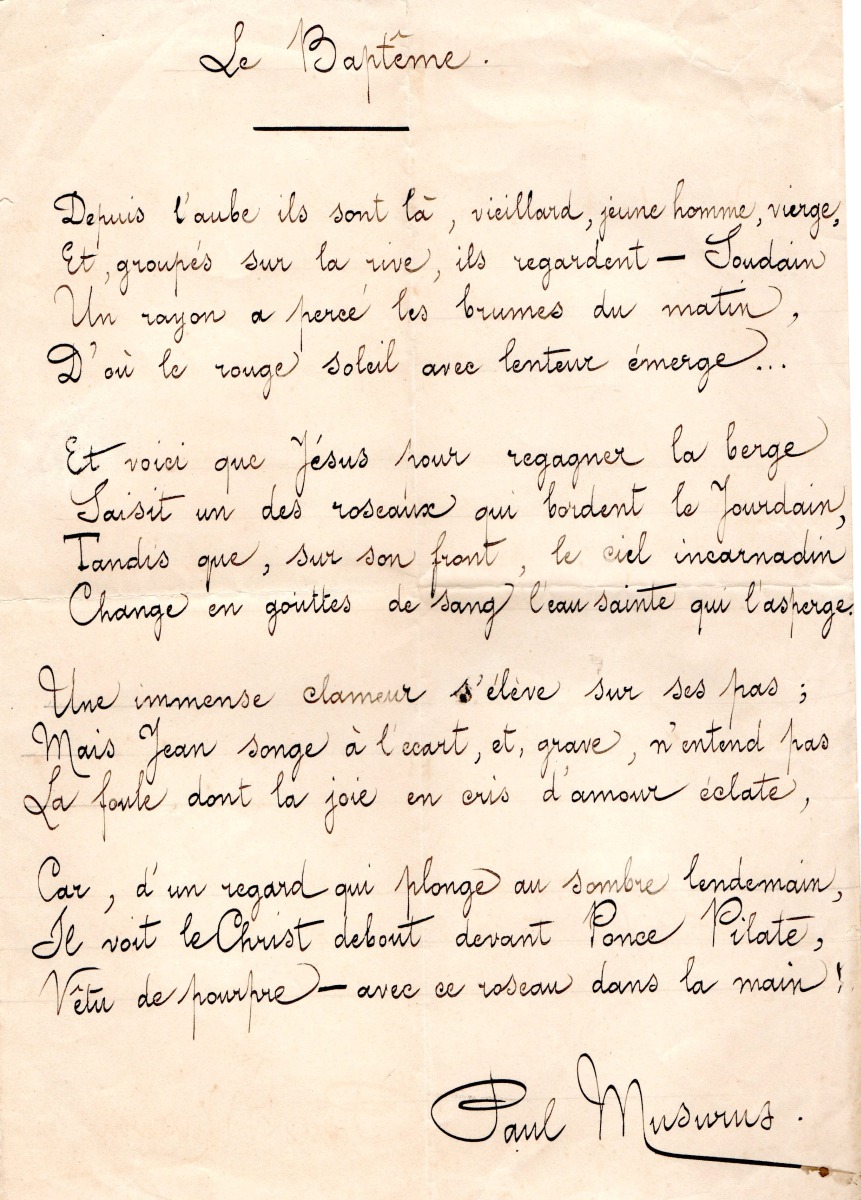 Le Baptême.
Depuis l'aube ils sont là, vieillard, jeune homme, vierge,
Et, groupés sur la rive, ils regardent — Soudain
Un rayon a percé les brumes du matin,
D'où le rouge soleil avec lenteur émerge...
Et voici que Jésus pour regagner la berge
Saisit un des roseaux qui bordent le Jourdain,
Tandis que, sur son front, le ciel incarnadin
Change en gouttes de sang l'eau sainte qui l'asperge.
Une immense clameur s'élève sur ses pas ;
Mais Jean songe à l'ecart, et, grave, n'entend pas
La foule dont la joie en cris d'amour éclate,
Car, d'un regard qui plonge au sombre lendemain,
Il voit le Christ debout devant Ponce Pilate,
Vêtu de pourpre — avec ce roseau dans la main !
Paul Musurus.